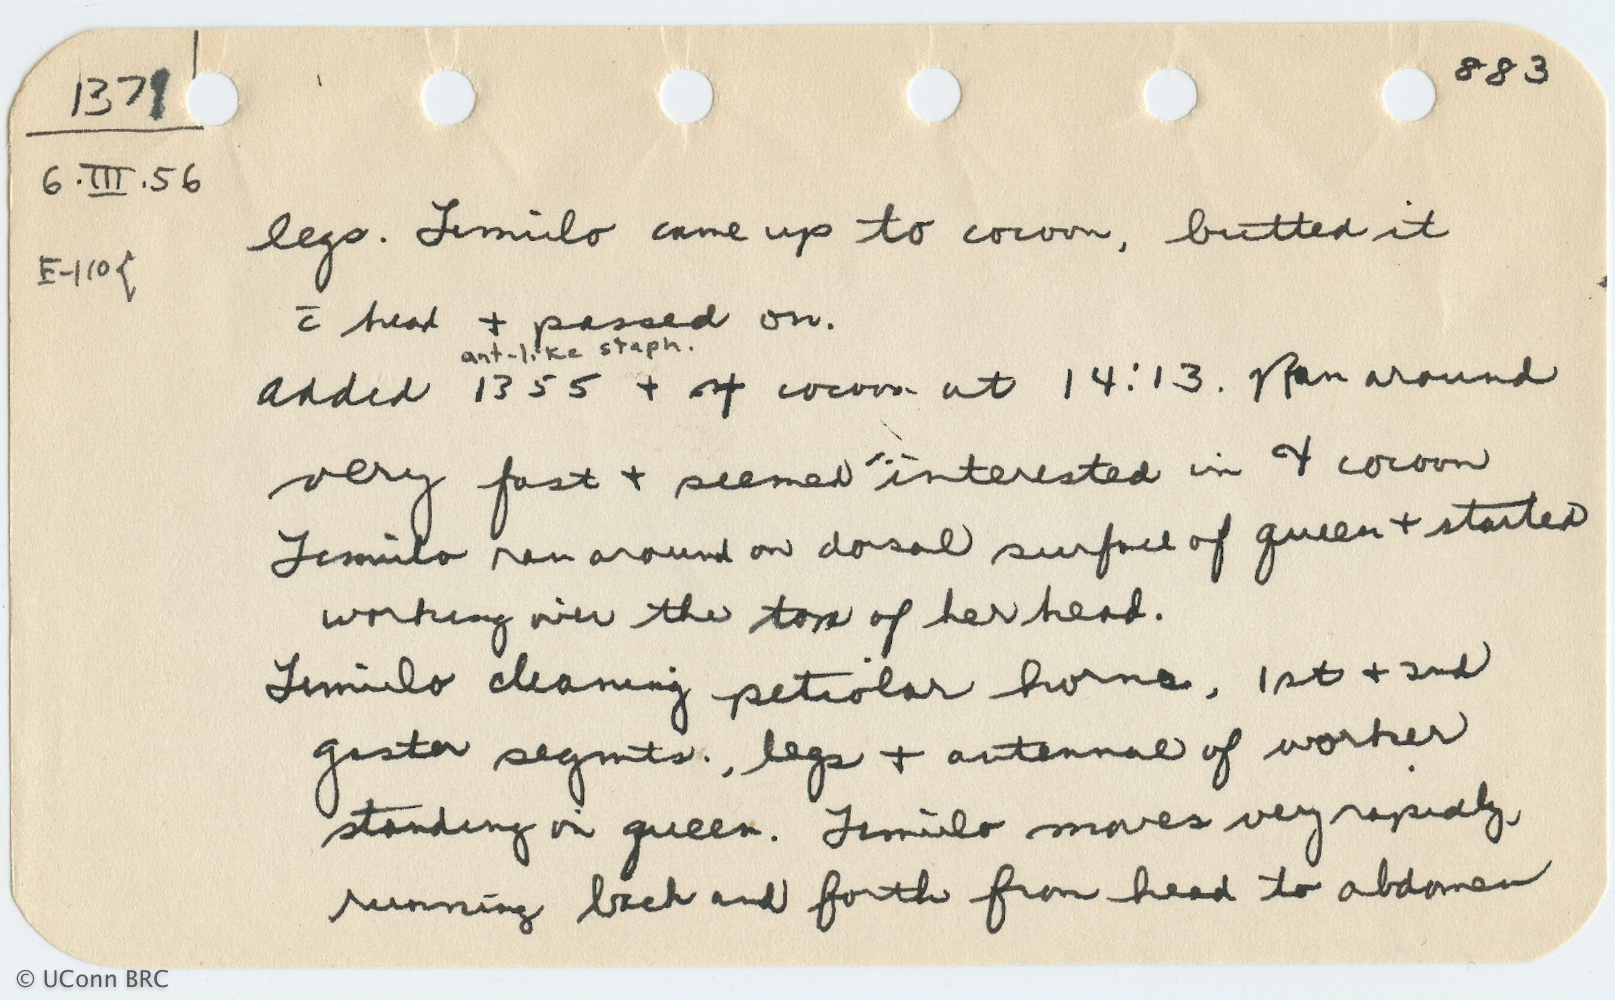 1371
883
6.III.56
E-110{
legs. Limulo came up to cocoon, butted it
c̄ head + passed on.
ant-like staph.
Added 1355 + cocoon at 14:13. Ran around
very fast + seemed interested in cocoon
Limulo ran around on dorsal surface of queen + started
working over the top of her head.
Limulo cleaning petiolar horns, 1st + 2nd
gaster segmts., legs + antennae of worker
standing on queen. Limulo moves very rapidly,
running back and forth from head to abdomen
© UConn BRC